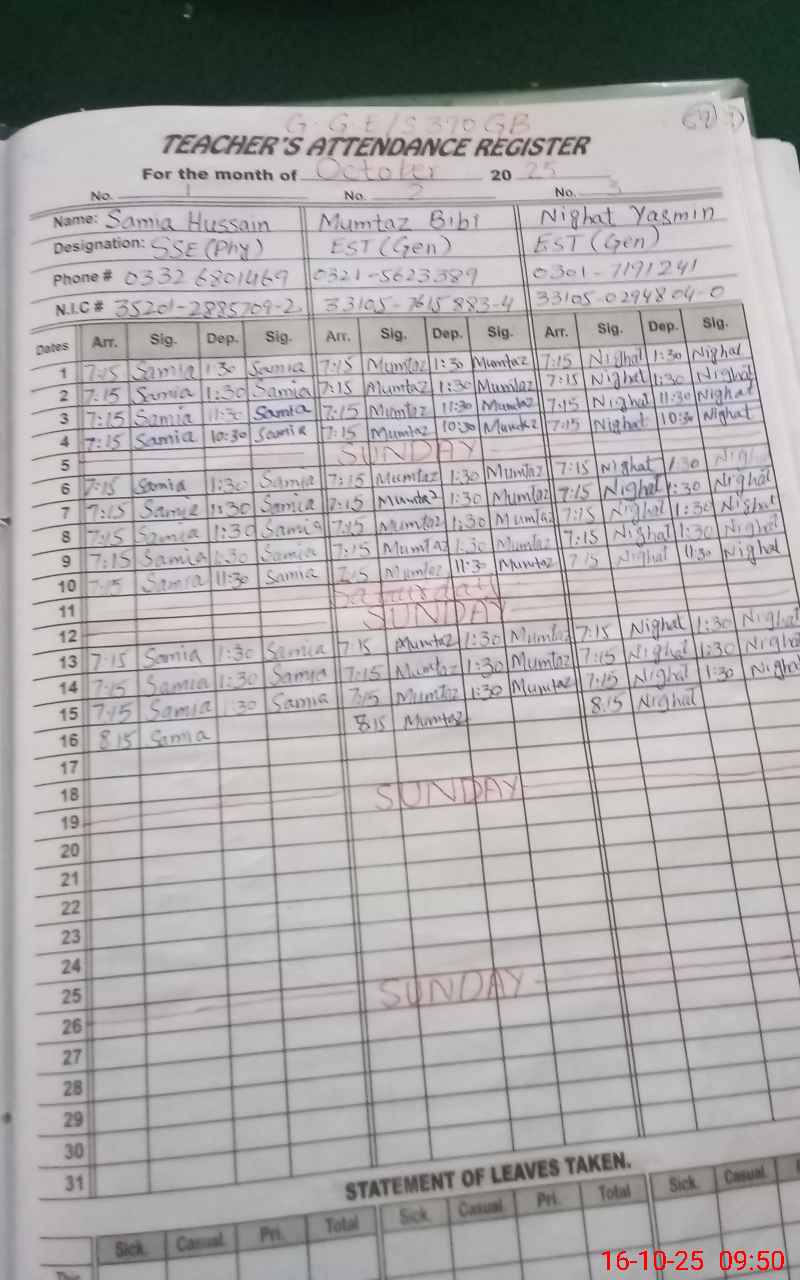 G.G.E/S 390 GB
TEACHER'S ATTENDANCE REGISTER
For the month of October 20 25
No. 1 No. 2 No. 3
Name: Samia Hussain Mumtaz Bibi Nighat Yasmin
Designation: SSE (Phy) EST (Gen) EST (Gen)
Phone # 0332 6801469 0321-5623389 0301-7191241
N.I.C # 35201-2885709-2 33105-7615883-4 33105-0294804-0
Dates Arr. Sig. Dep. Sig. Arr. Sig. Dep. Sig. Arr. Sig. Dep. Sig.
1 7:15 Samia 1:30 Samia 7:15 Mumtaz 1:30 Mumtaz 7:15 Nighat 1:30 Nighat
2 7:15 Samia 1:30 Samia 7:15 Mumtaz 1:30 Mumtaz 7:15 Nighat 1:30 Nighat
3 7:15 Samia 11:30 Samia 7:15 Mumtaz 11:30 Mumtaz 7:15 Nighat 11:30 Nighat
4 7:15 Samia 10:30 Samia 7:15 Mumtaz 10:30 Mumtaz 7:15 Nighat 10:30 Nighat
5 SUNDAY
6 7:15 Samia 1:30 Samia 7:15 Mumtaz 1:30 Mumtaz 7:15 Nighat 1:30 Nigh
7 7:15 Samia 1:30 Samia 7:15 Mumtaz 1:30 Mumtaz 7:15 Nighat 1:30 Nighat
8 7:15 Samia 1:30 Samia 7:15 Mumtaz 1:30 Mumtaz 7:15 Nighat 1:30 Nighat
9 7:15 Samia 1:30 Samia 7:15 Mumtaz 1:30 Mumtaz 7:15 Nighat 1:30 Nighat
10 7:15 Samia 11:30 Samia 7:15 Mumtaz 11:30 Mumtaz 7:15 Nighat 11:30 Nighat
11 Saturday
12 SUNDAY
13 7:15 Samia 1:30 Samia 7:15 Mumtaz 1:30 Mumtaz 7:15 Nighat 1:30 Nighat
14 7:15 Samia 1:30 Samia 7:15 Mumtaz 1:30 Mumtaz 7:15 Nighat 1:30 Nighat
15 7:15 Samia 1:30 Samia 7:15 Mumtaz 1:30 Mumtaz 7:15 Nighat 1:30 Nighat
16 8 15 Samia 8:15 Mumtaz 8:15 Nighat
17
18
19 SUNDAY
20
21
22
23
24
25
26 SUNDAY
27
28
29
30
31
STATEMENT OF LEAVES TAKEN.
Sick. Casual. Pri. Total Sick. Casual. Pri. Total Sick. Casual.
This
16-10-25 09:50